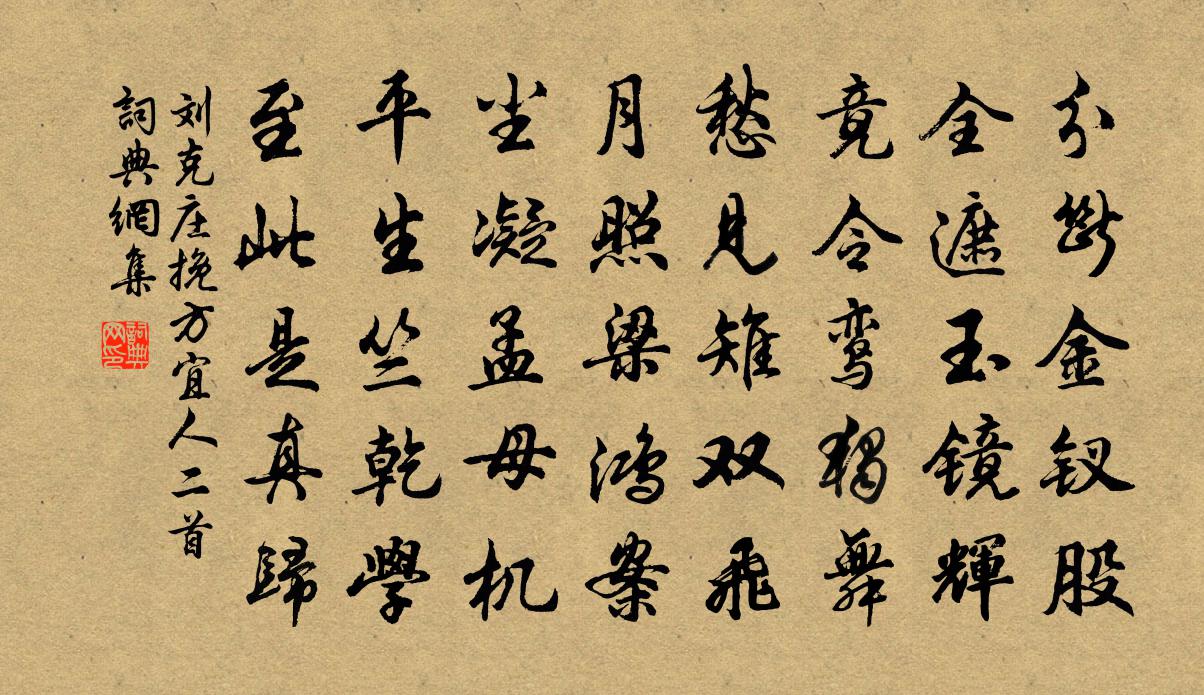 分断金钗股
全遮玉镜輝
竟令鸾独舞
愁见雉双飛
月照梁鸿案
尘凝孟母机
平生竺乾學
至此是真歸
刘克庄挽方宜人二首
詞典網集
詞典网印